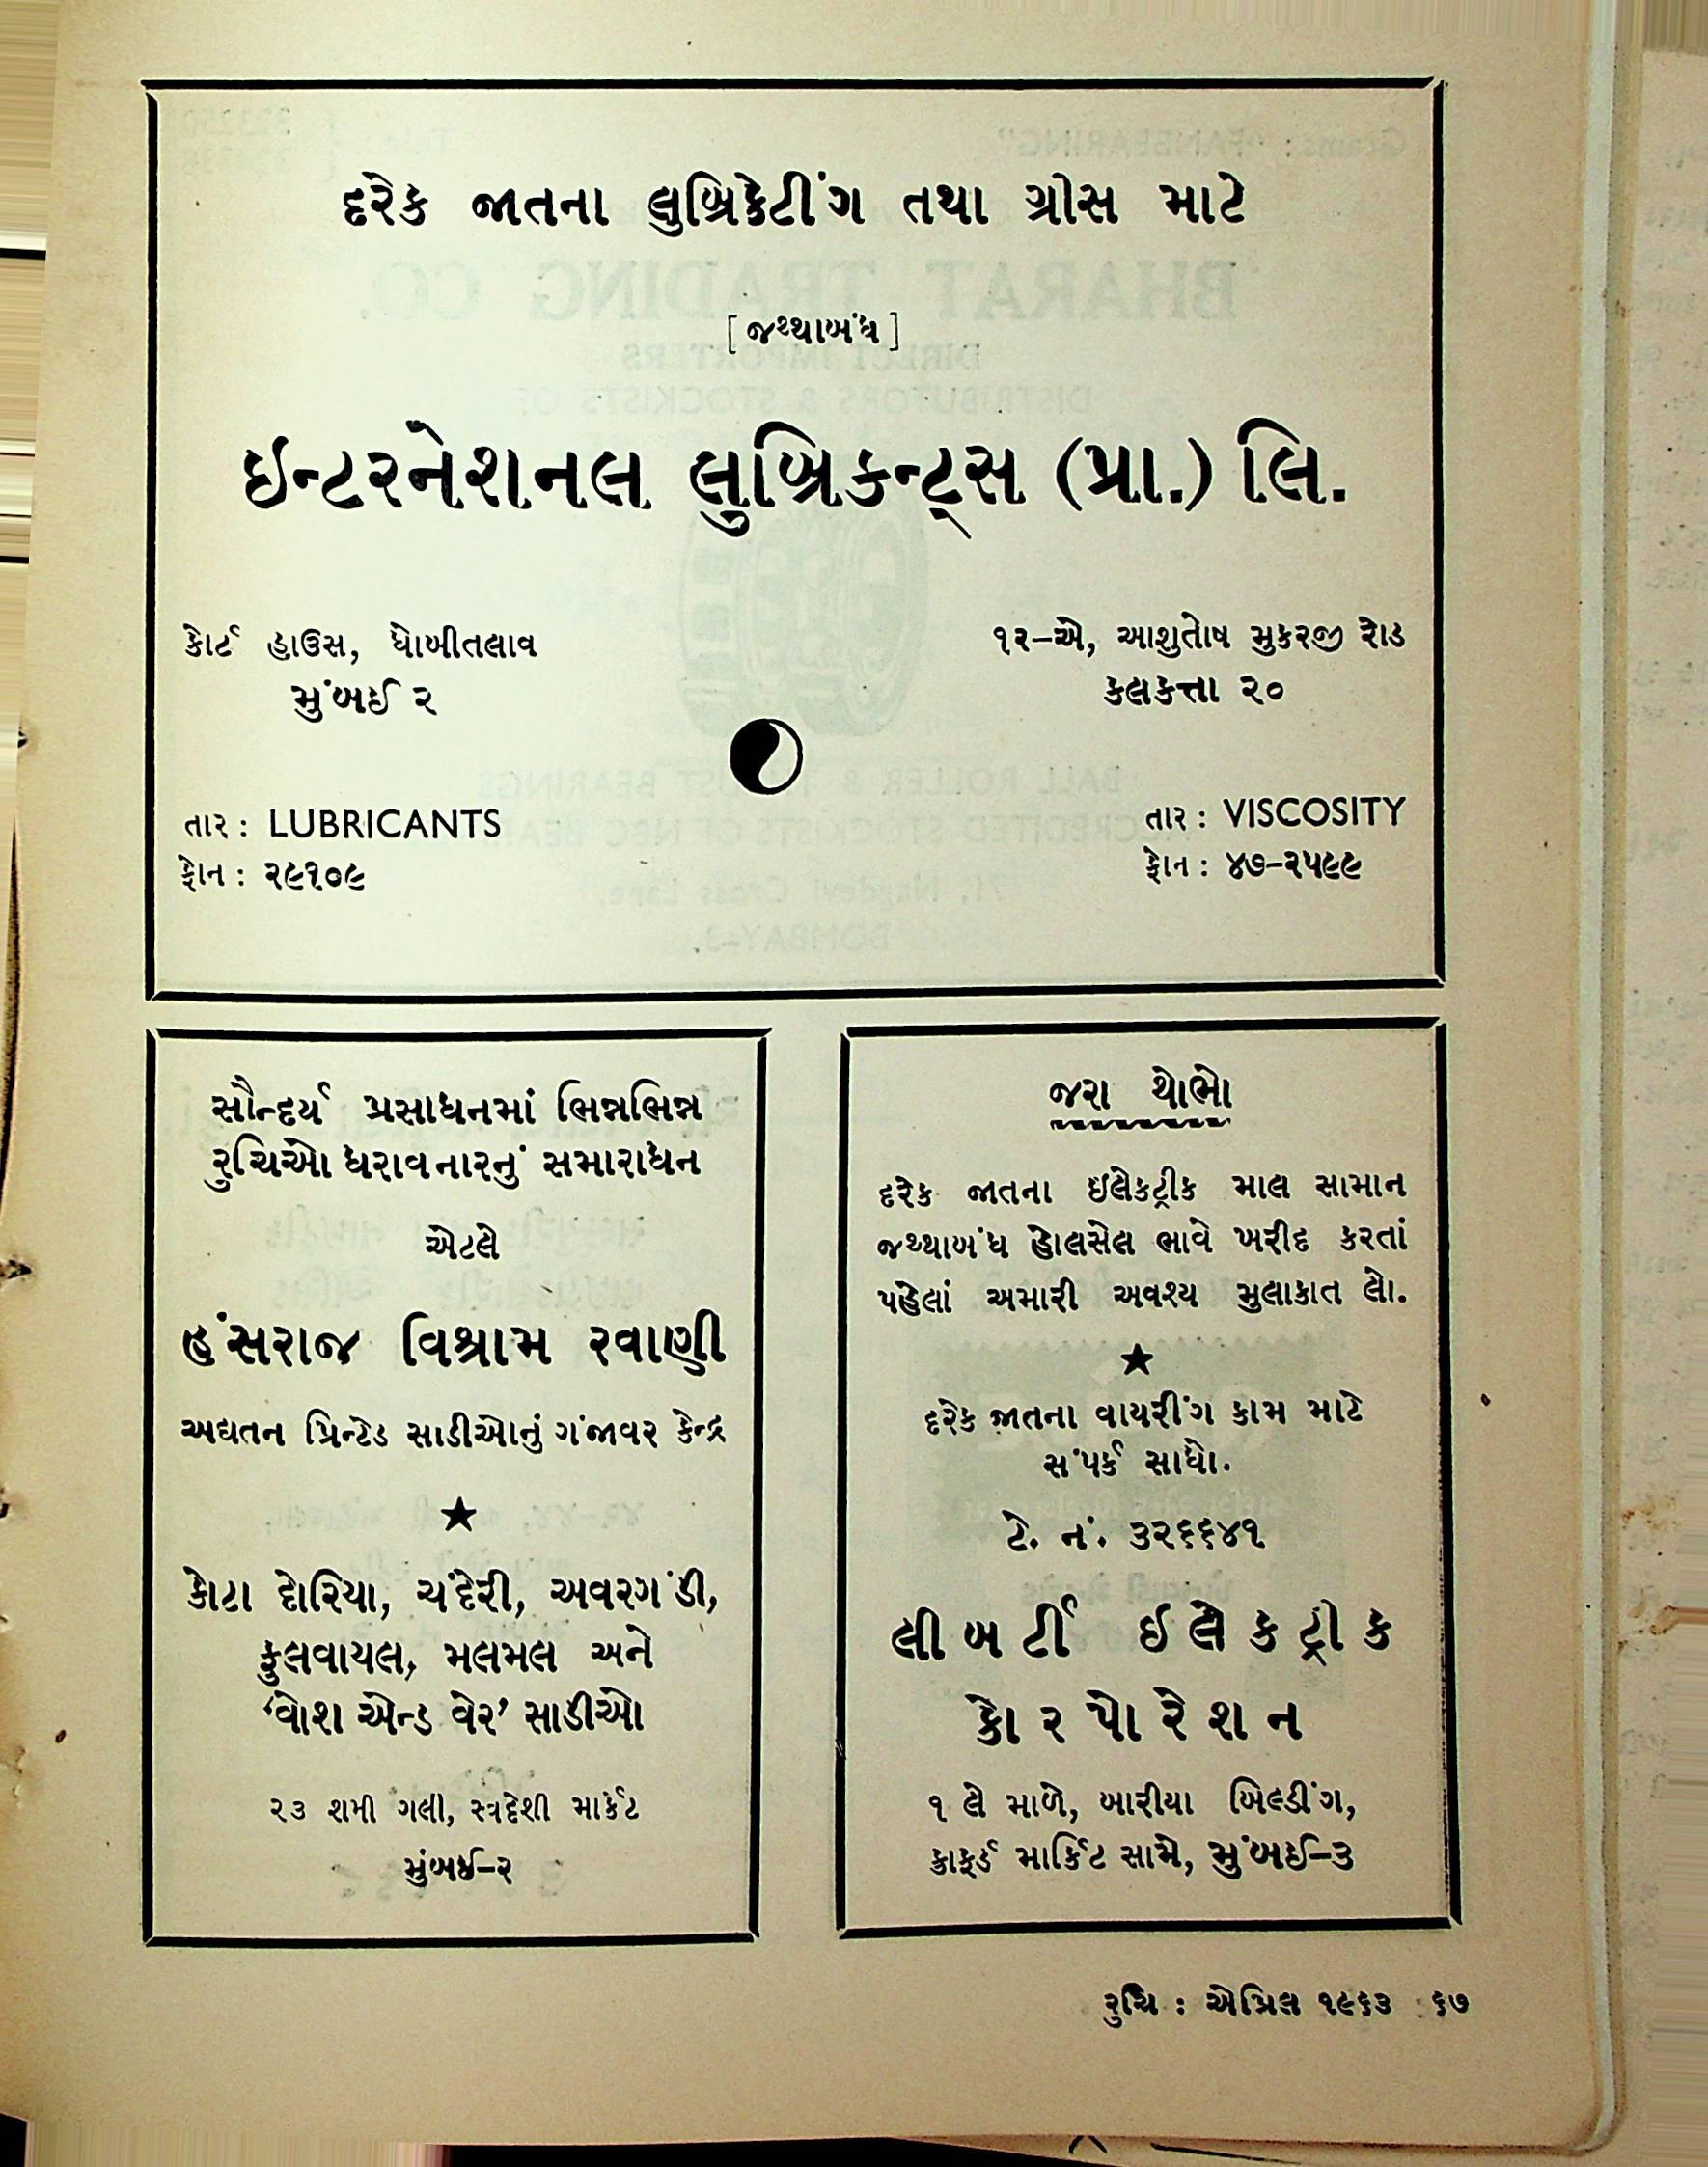 દરેક જાતના લુબ્રિકેટીંગ તથા ગ્રીસ માટે
[જથ્થાબંધ]
ઇન્ટરનેશનલ લુબ્રિકન્ટ્સ (પ્રા.) લિ.
કોર્ટ હાઉસ, ધોબીતલાવ
મુંબઈ ૨
૧૨-એ, આશુતોષ મુકરજી રોડ
કલકત્તા ૨૦
તાર : LUBRICANTS
ફોન : ૨૯૧૦૯
તાર : VISCOSITY
ફોન : ૪૭-૨૫૯૯
સૌન્દર્ય પ્રસાધનમાં ભિન્નભિન્ન
રુચિઓ ધરાવનારનું સમારાધન
એટલે
હંસરાજ વિશ્રામ રવાણી
અદ્યતન પ્રિન્ટેડ સાડીઓનું ગંજાવર કેન્દ્ર
★
કોટા દોરિયા, ચંદેરી, અવરગંડી,
ફુલવાયલ, મલમલ અને
‘વોશ એન્ડ વેર’ સાડીઓ
૨૩ શમી ગલી, સ્વદેશી માર્કેટ
મુંબઈ-૨
જરા થોભો
દરેક જાતના ઇલેકટ્રીક માલ સામાન
જથ્થાબંધ હોલસેલ ભાવે ખરીદ કરતાં
પહેલાં અમારી અવશ્ય મુલાકાત લો.
★
દરેક જાતના વાયરીંગ કામ માટે
સંપર્ક સાધો.
ટે. નં. ૩૨૬૬૪૧
લીબર્ટી ઈલેકટ્રીક
કોરપોરેશન
૧ લે માળે, બારીયા બિલ્ડીંગ,
ક્રાફર્ડ માર્કિટ સામે, મુંબઈ-૩
રુચિ : એપ્રિલ ૧૯૬૩ : ૬૭